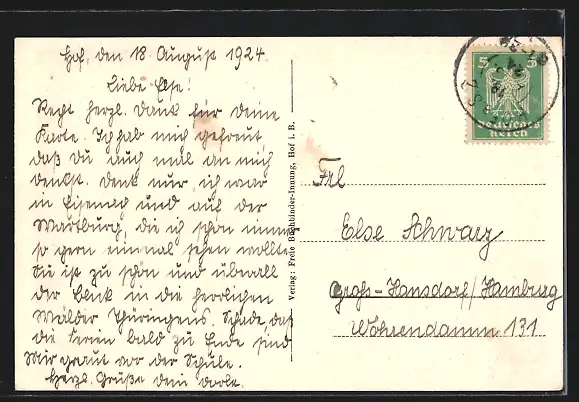 Hof, den 18. August 1924.
Liebe Else!
Recht herzl. Dank für deine
Karte. Ich hab mich gefreut,
daß du auch mal an mich
denkst. Denk nur, ich war
in Eisenach und auf der
Wartburg, die ich schon immer
so gern einmal sehen wollte.
Sie ist zu schön und überall
der Blick in die herrlichen
Wälder Thüringens. Schade, daß
die Ferien bald zu Ende sind
Mir graut vor der Schule.
Herzl. Grüße dein
Verlag: Freie Buchbinder-Innung, Hof i. B.
5 5
Deutsches
Reich
Frl
Else Schwarz
Grohs-Hansdorf/Hamburg
Wöhrendamm 131